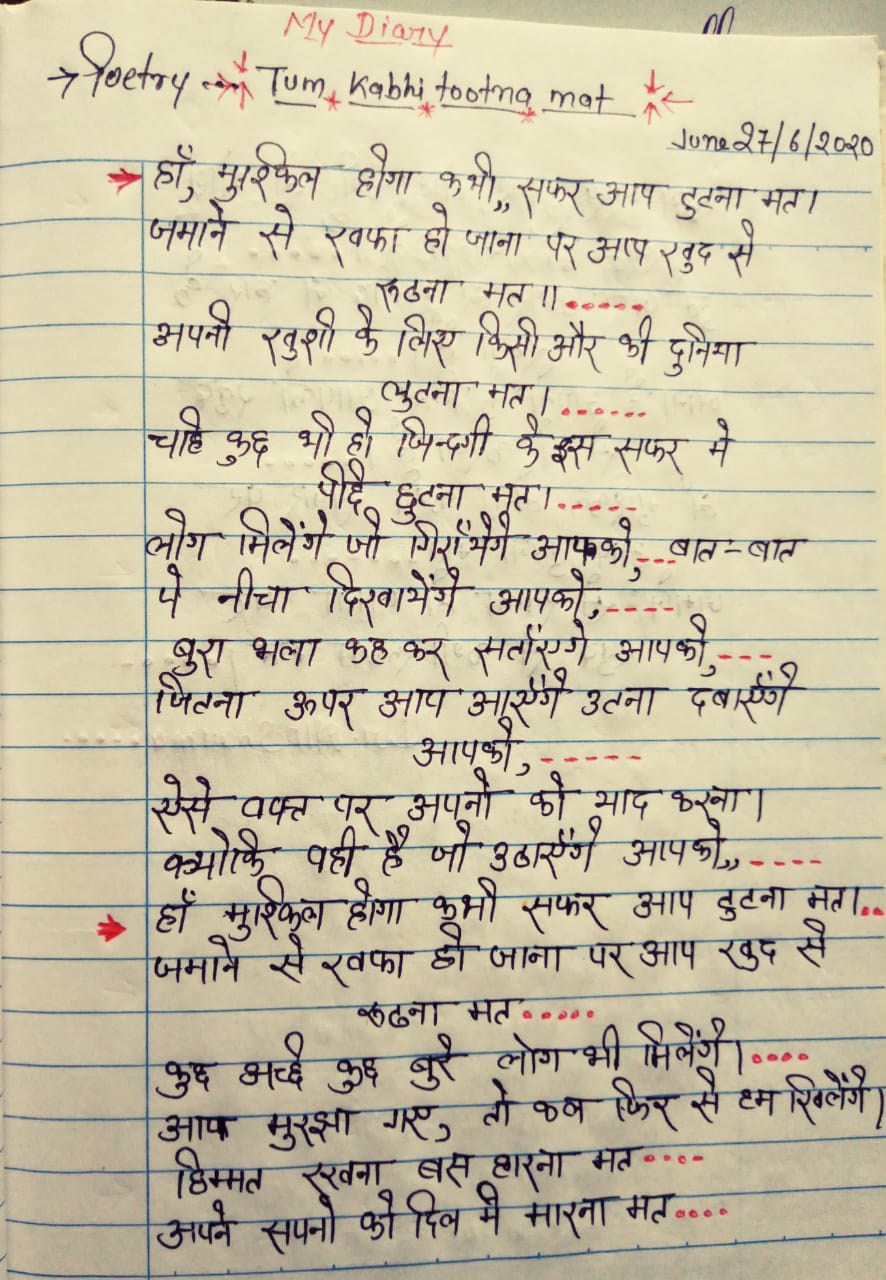 My Diary
→ Poetry → Tum Kabhi tootna mat
June 27/6/2020
हाँ, मुश्किल होगा कभी,, सफर आप टुटना मत।
जमाने से खफा हो जाना पर आप खुद से
रूठना मत॥......
अपनी खुशी के लिए किसी और की दुनिया
लुटना मत।......
चाहे कुछ भी हो जिन्दगी के इस सफर मे
पीछे छुटना मत।.....
लोग मिलेंगे जो गिराँयेगे आपको,... बात-बात
पे नीचा दिखायेंगे आपको,----
बुरा भला कह कर सताँएगे आपको,---
जितना ऊपर आप आएँगे उतना दबाएँगे
आपको,------
ऐसे वक्त पर अपनो को याद करना।
क्योकि वही है जो उठाएँगे आपको,,----
हाँ मुश्किल होगा कभी सफर आप टुटना मत।..
जमाने से खफा हो जाना पर आप खुद से
रूठना मत.....
कुछ अच्छे कुछ बुरे लोग भी मिलेंगे।....
आप मुरझा गए, तो कब फिर से हम खिलेंगे।
हिम्मत रखना बस हारना मत....
अपने सपनो को दिल मे मारना मत....